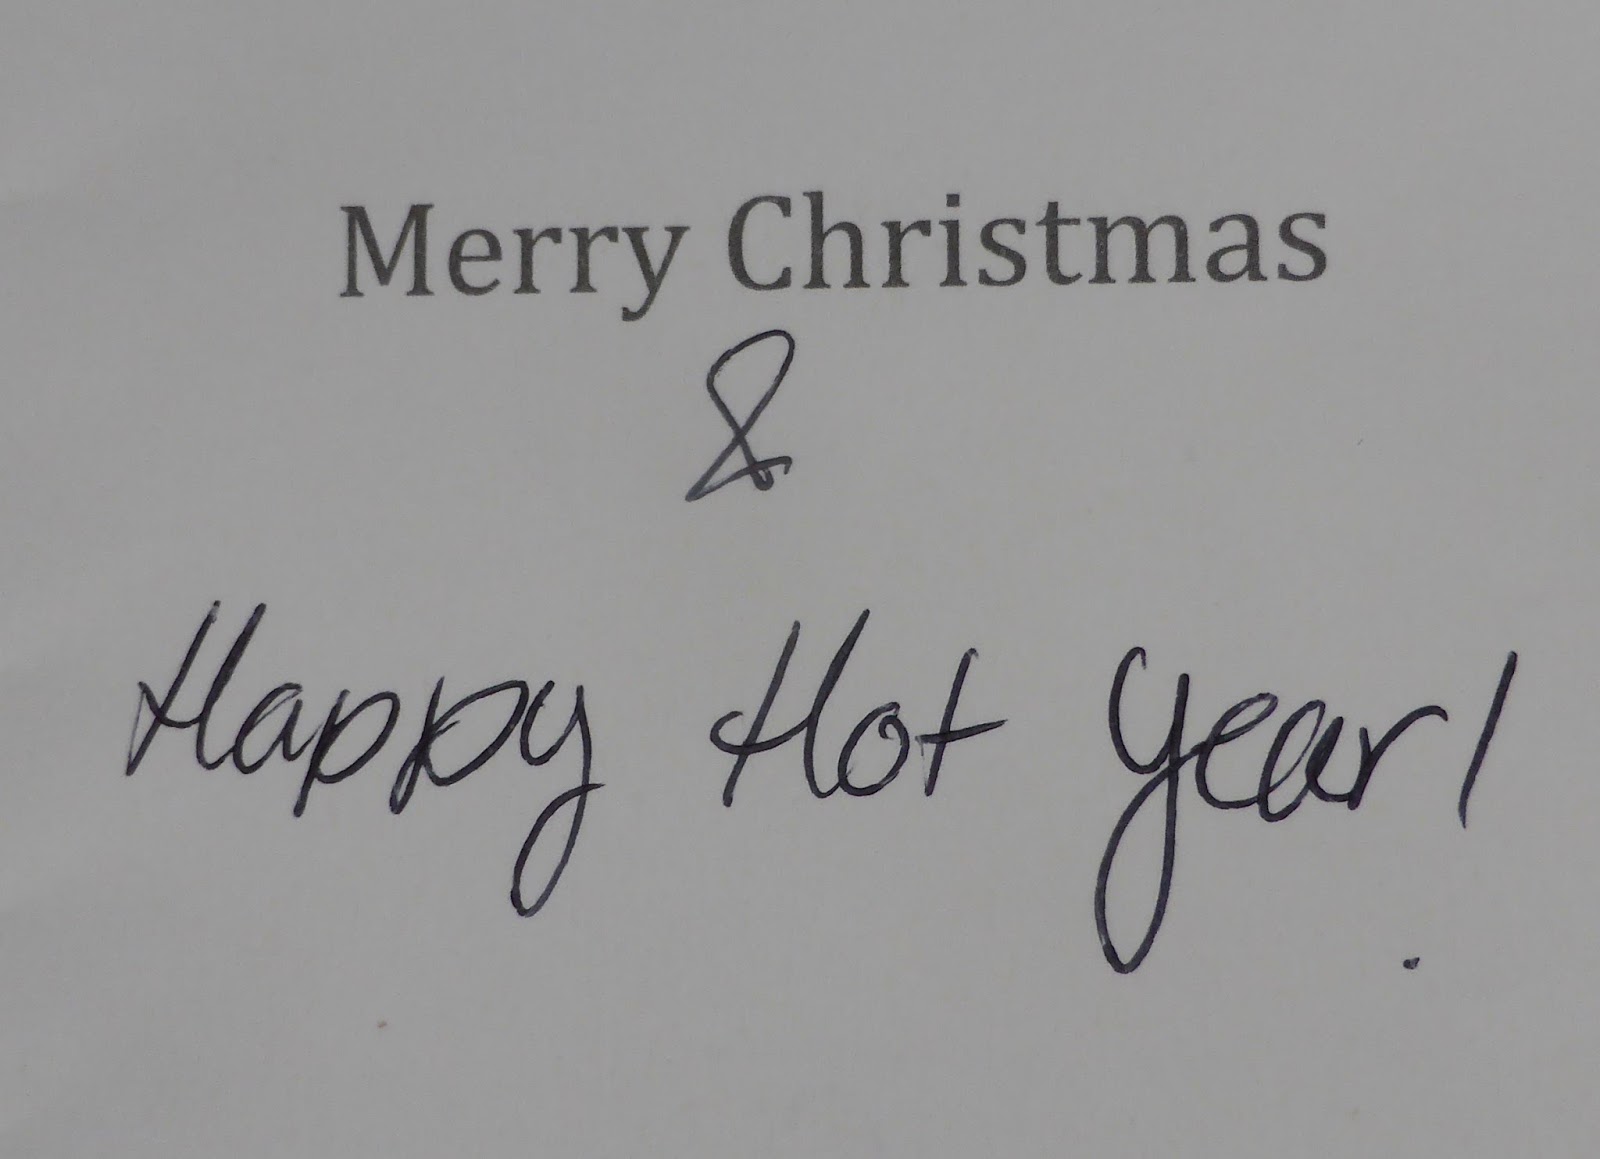 Merry Christmas
&
Happy Hot Year!